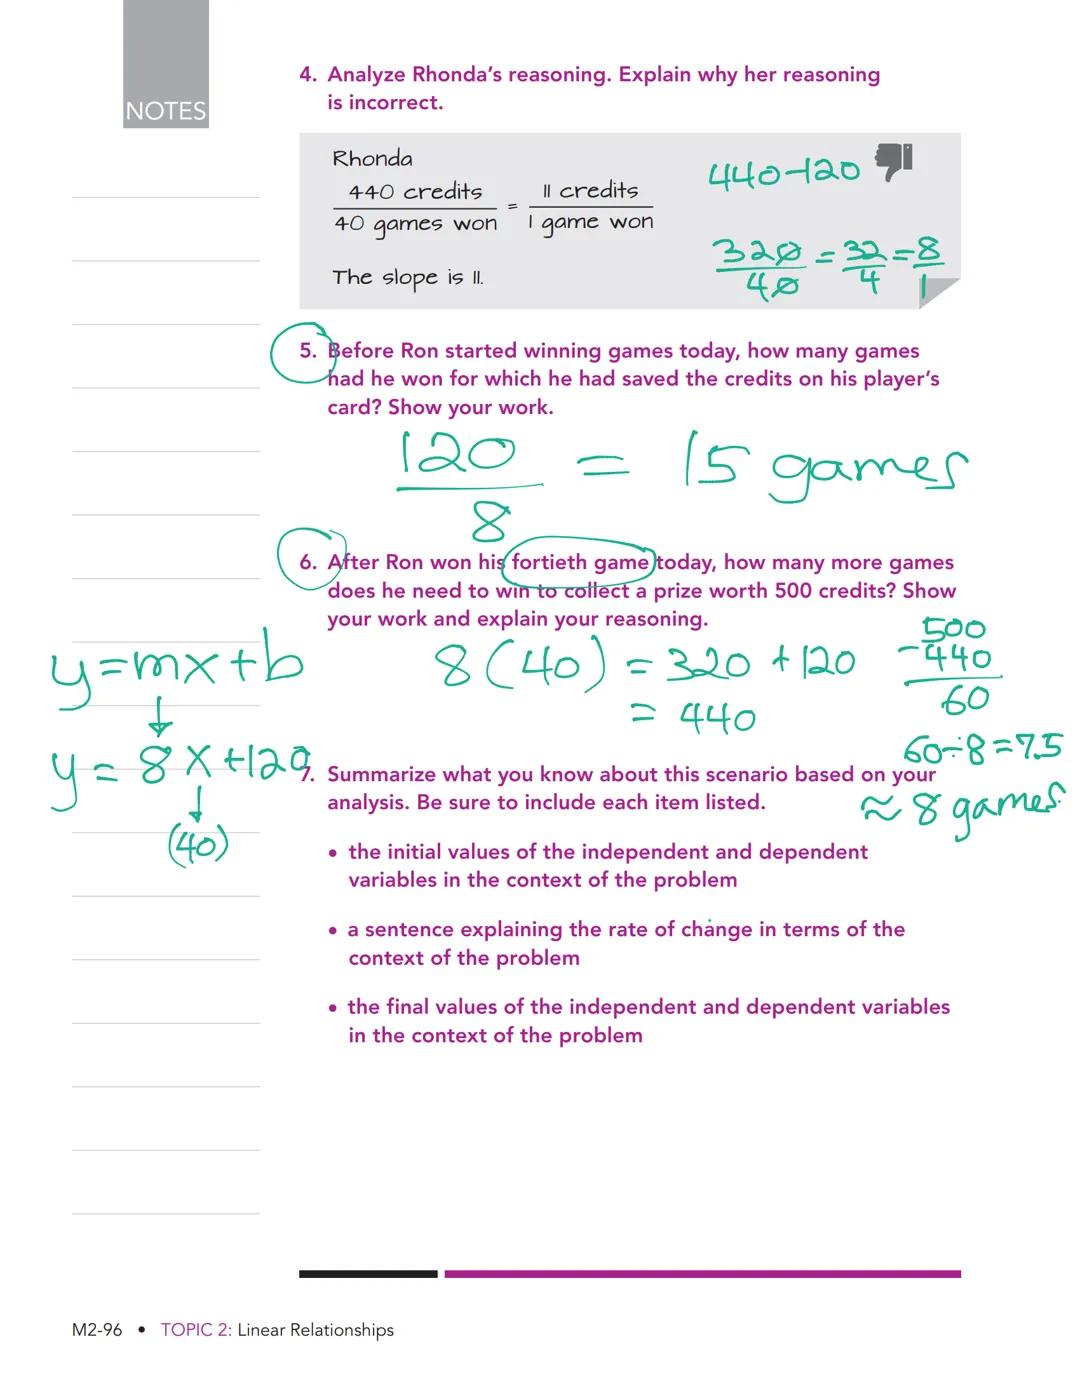 NOTES
4. Analyze Rhonda's reasoning. Explain why her reasoning
is incorrect.
Rhonda
440 credits / 40 games won = 11 credits / 1 game won
The slope is 11.
440-120
320/40 = 32/4 = 8/1
5. Before Ron started winning games today, how many games
had he won for which he had saved the credits on his player's
card? Show your work.
120/8 = 15 games
6. After Ron won his fortieth game today, how many more games
does he need to win to collect a prize worth 500 credits? Show
your work and explain your reasoning.
y=mx+b
↓
y = 8x+120
↓
(40)
8(40) = 320 +120
= 440
500
-440
60
60÷8=7.5
≈ 8 games.
7. Summarize what you know about this scenario based on your
analysis. Be sure to include each item listed.
• the initial values of the independent and dependent
variables in the context of the problem
• a sentence explaining the rate of change in terms of the
context of the problem
• the final values of the independent and dependent variables
in the context of the problem
M2-96 • TOPIC 2: Linear Relationships